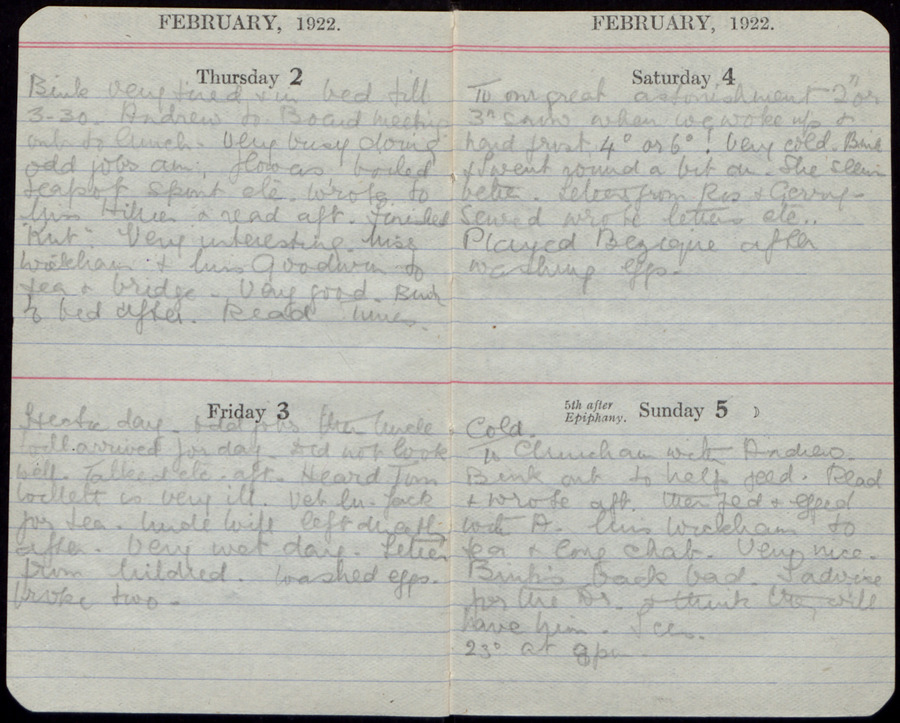 FEBRUARY, 1922.
Thursday 2
Bink very tired & in bed till
3-30. Andrew to Board meeting
out to lunch. Very busy doing
odd jobs am; flowers, boiled
teapot spout etc. Wrote to
Miss Hillier & read aft. Finished
"Kut". Very interesting. Miss
Wickham & Miss Goodwin to
tea & bridge. Very good. Bink
to bed after. Read Times.
Friday 3
Hectic day. Odd jobs then Uncle
Will arrived for day. Did not look
well. Talked etc. aft. Heard Tom
Willett is very ill. Jack
for tea. Uncle Will left directly
after. Very wet day. Letter
from Mildred. Washed eggs.
broke two -
FEBRUARY, 1922.
Saturday 4
To our great astonishment 2" or
3" snow when we woke up &
hard frost 4° or 6°! Very cold. Bink
& I went round a bit am. She seems
better. Letters from & Gerry -
Sewed wrote letters etc..
Played Bezique after
washing eggs -
5th after
Epiphany.
Sunday 5
Cold.
To Church am with Andrew.
Bink out to help feed. Read
& wrote aft. then fed & egged
with A. Miss Wickham to
tea & long chat. Very nice.
Bink's back bad. I advise
for the Dr. & think they will
have him.
23° at 8pm